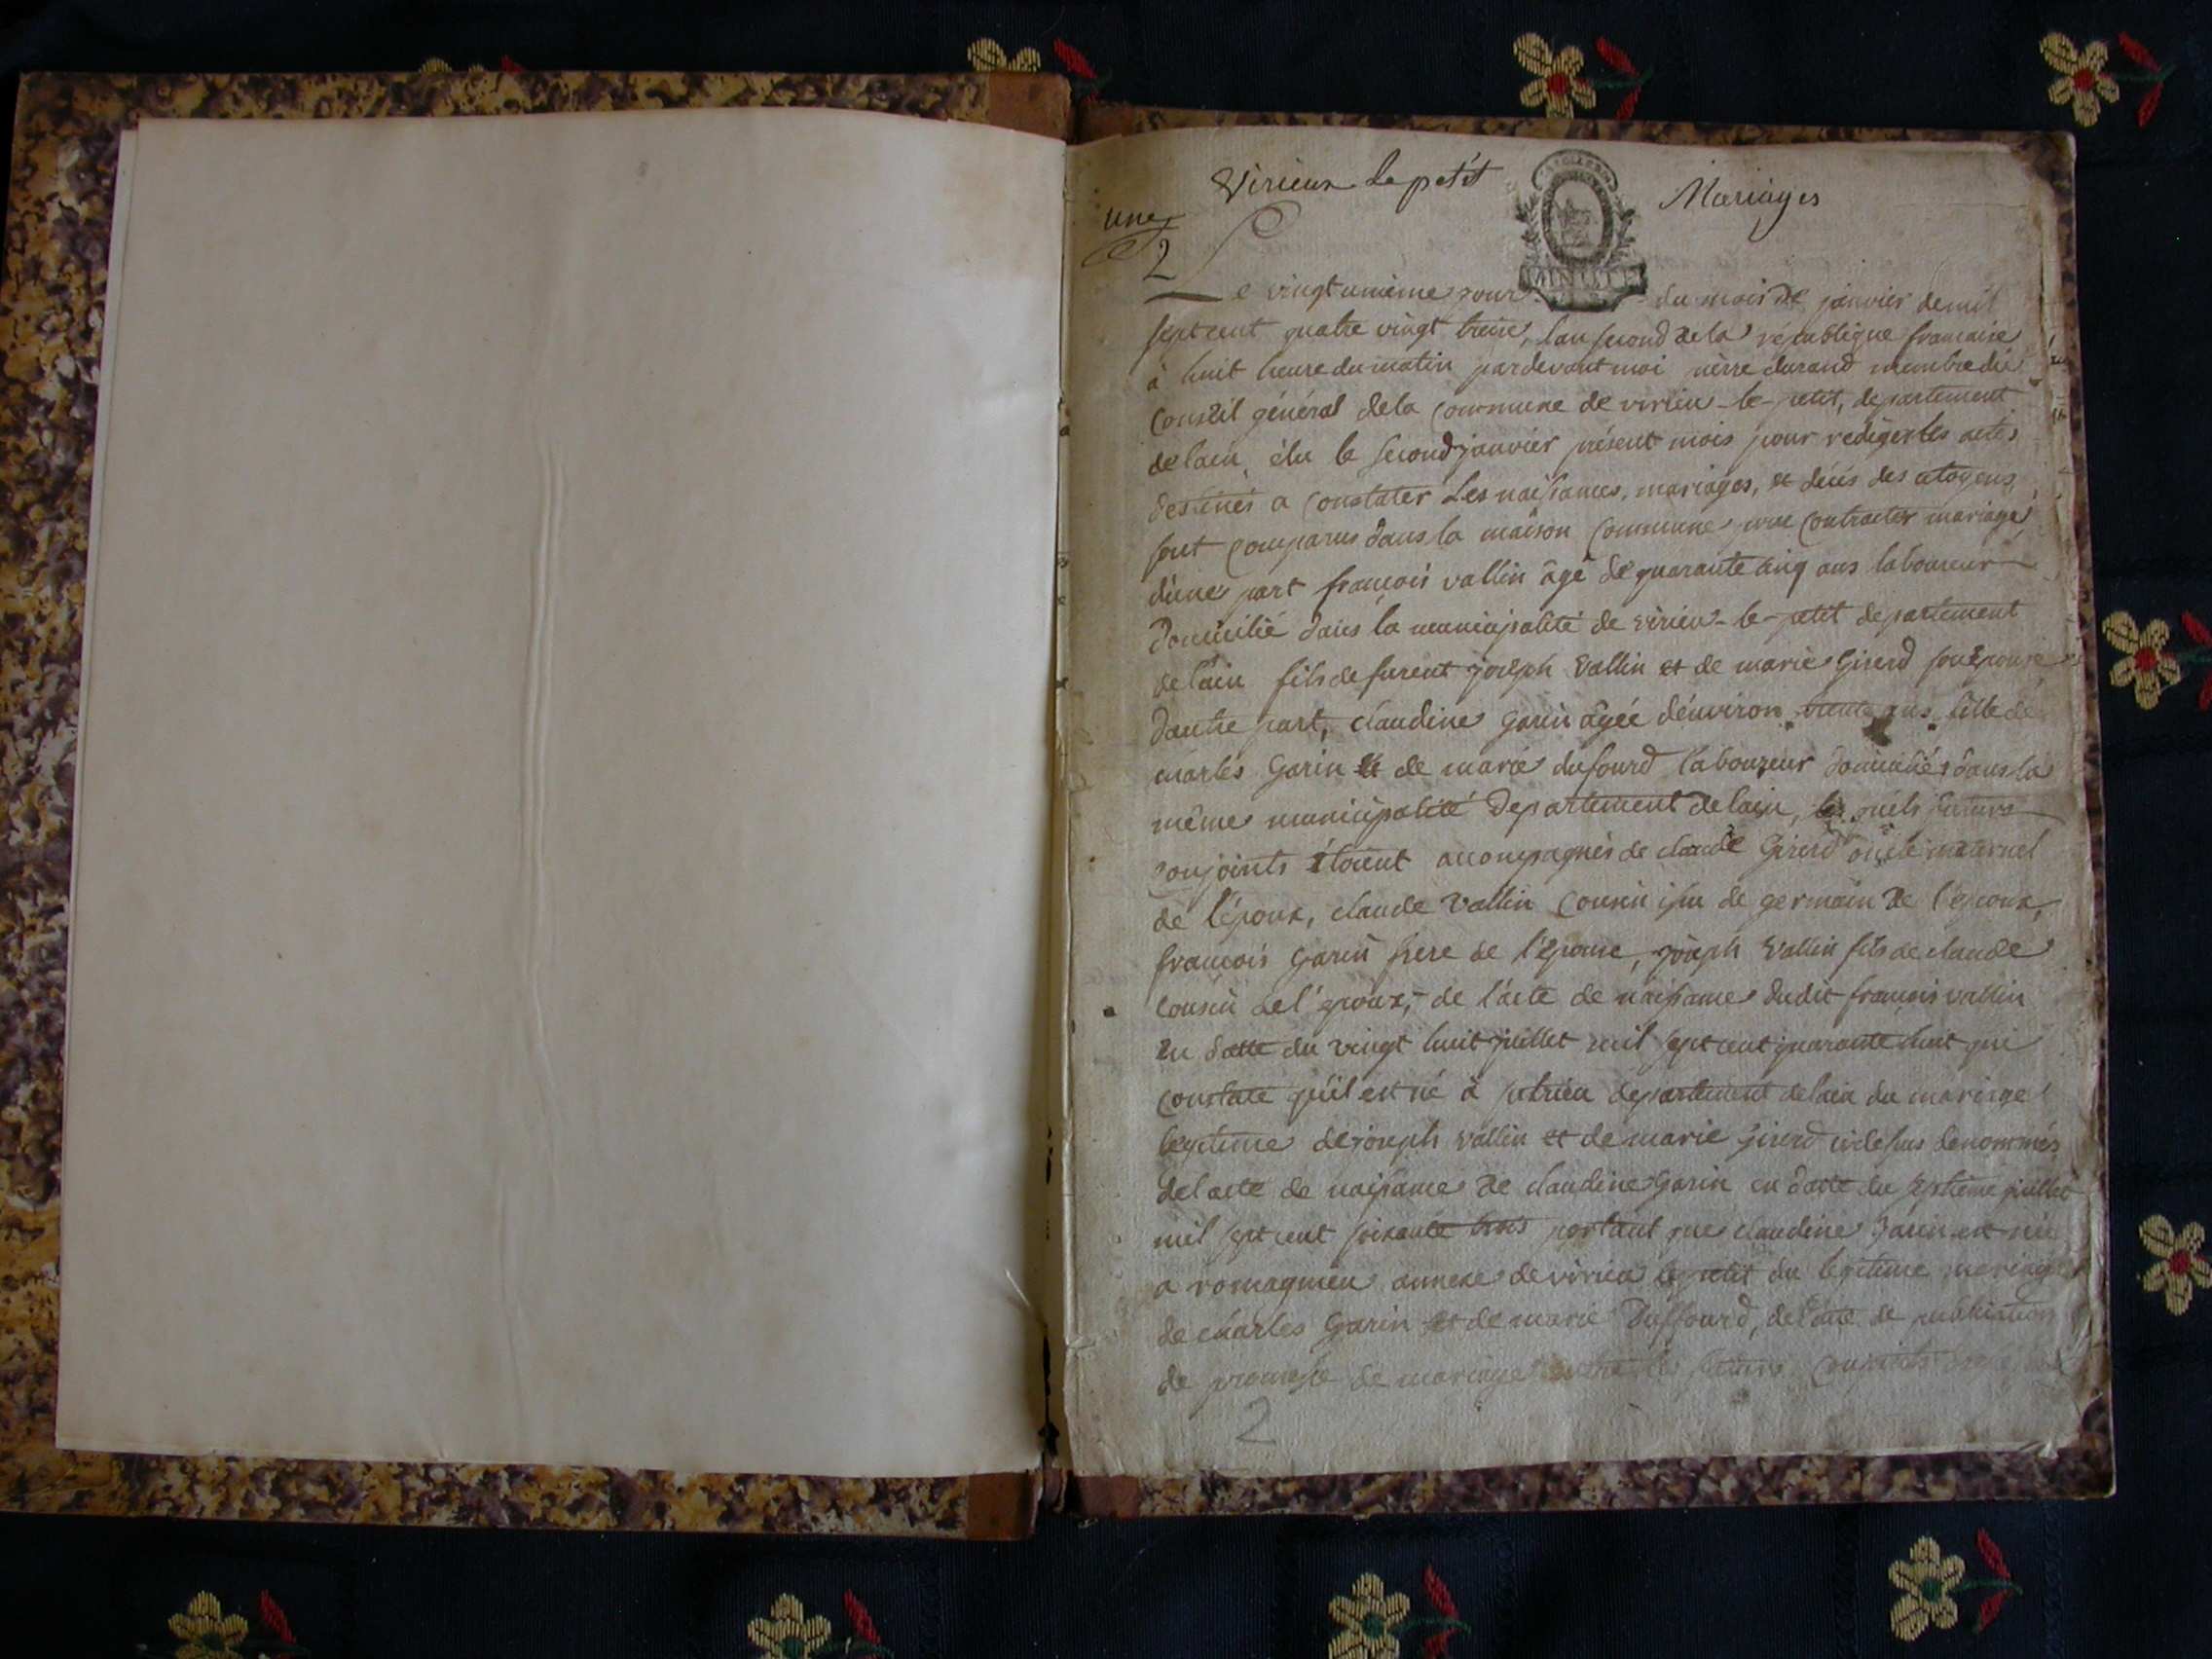 Virieux le petit
Mariages
une
2
Le vingt unieme jour du mois de janvier de mil
sept cent quatre vingt treize, l'an second de la république francaise
à huit heure du matin pardevant moi pierre durand membre du
Conseil général de la Commune de virieu-le-petit, departement
de lain, élu le second janvier présent mois pour rediger les actes
destinés a Constater Les naissances, mariages, et décés des citoyens
sont comparus dans la maison Commune pour Contracter mariage,
d'une part françois vallin âgé de quarante cinq ans laboureur
Domicilié dans la municipalité de virieu-le-petit departement
de l'ain fils de furent joseph Vallin et de marie Girerd son épouse
D'autre part, claudine Garin âgée d'environ trente ans fille de
charles Garin et de marie dufourd laboureur domiciliés dans la
même municipalité Departement de lain, les quels futurs
conjoints étoient accompagnés de claude Girerd oncle maternel
de l'époux, claude Vallin Cousin issu de germain de l'epoux,
francois Garin frere de l'épouse, joseph Vallin fils de claude
cousin de l'epoux, de l'acte de naissance dudit francois vallin
en datte du vingt huit juillet mil sept cent quarante huit qui
constate qu'il est né à departement de lain du mariage
legitime de joseph vallin et de marie Girerd cidessus denommés
de lacte de naissance de claudine Garin en datte du septieme juillet
mil sept cent soixante trois portant que claudine Garin est née
a romagnieu annexe de virieu le petit du legitime mariage
de charles Garin et de marie Duffourd, de l'acte de publication
de promesse de mariage entre les futurs conjoints
2